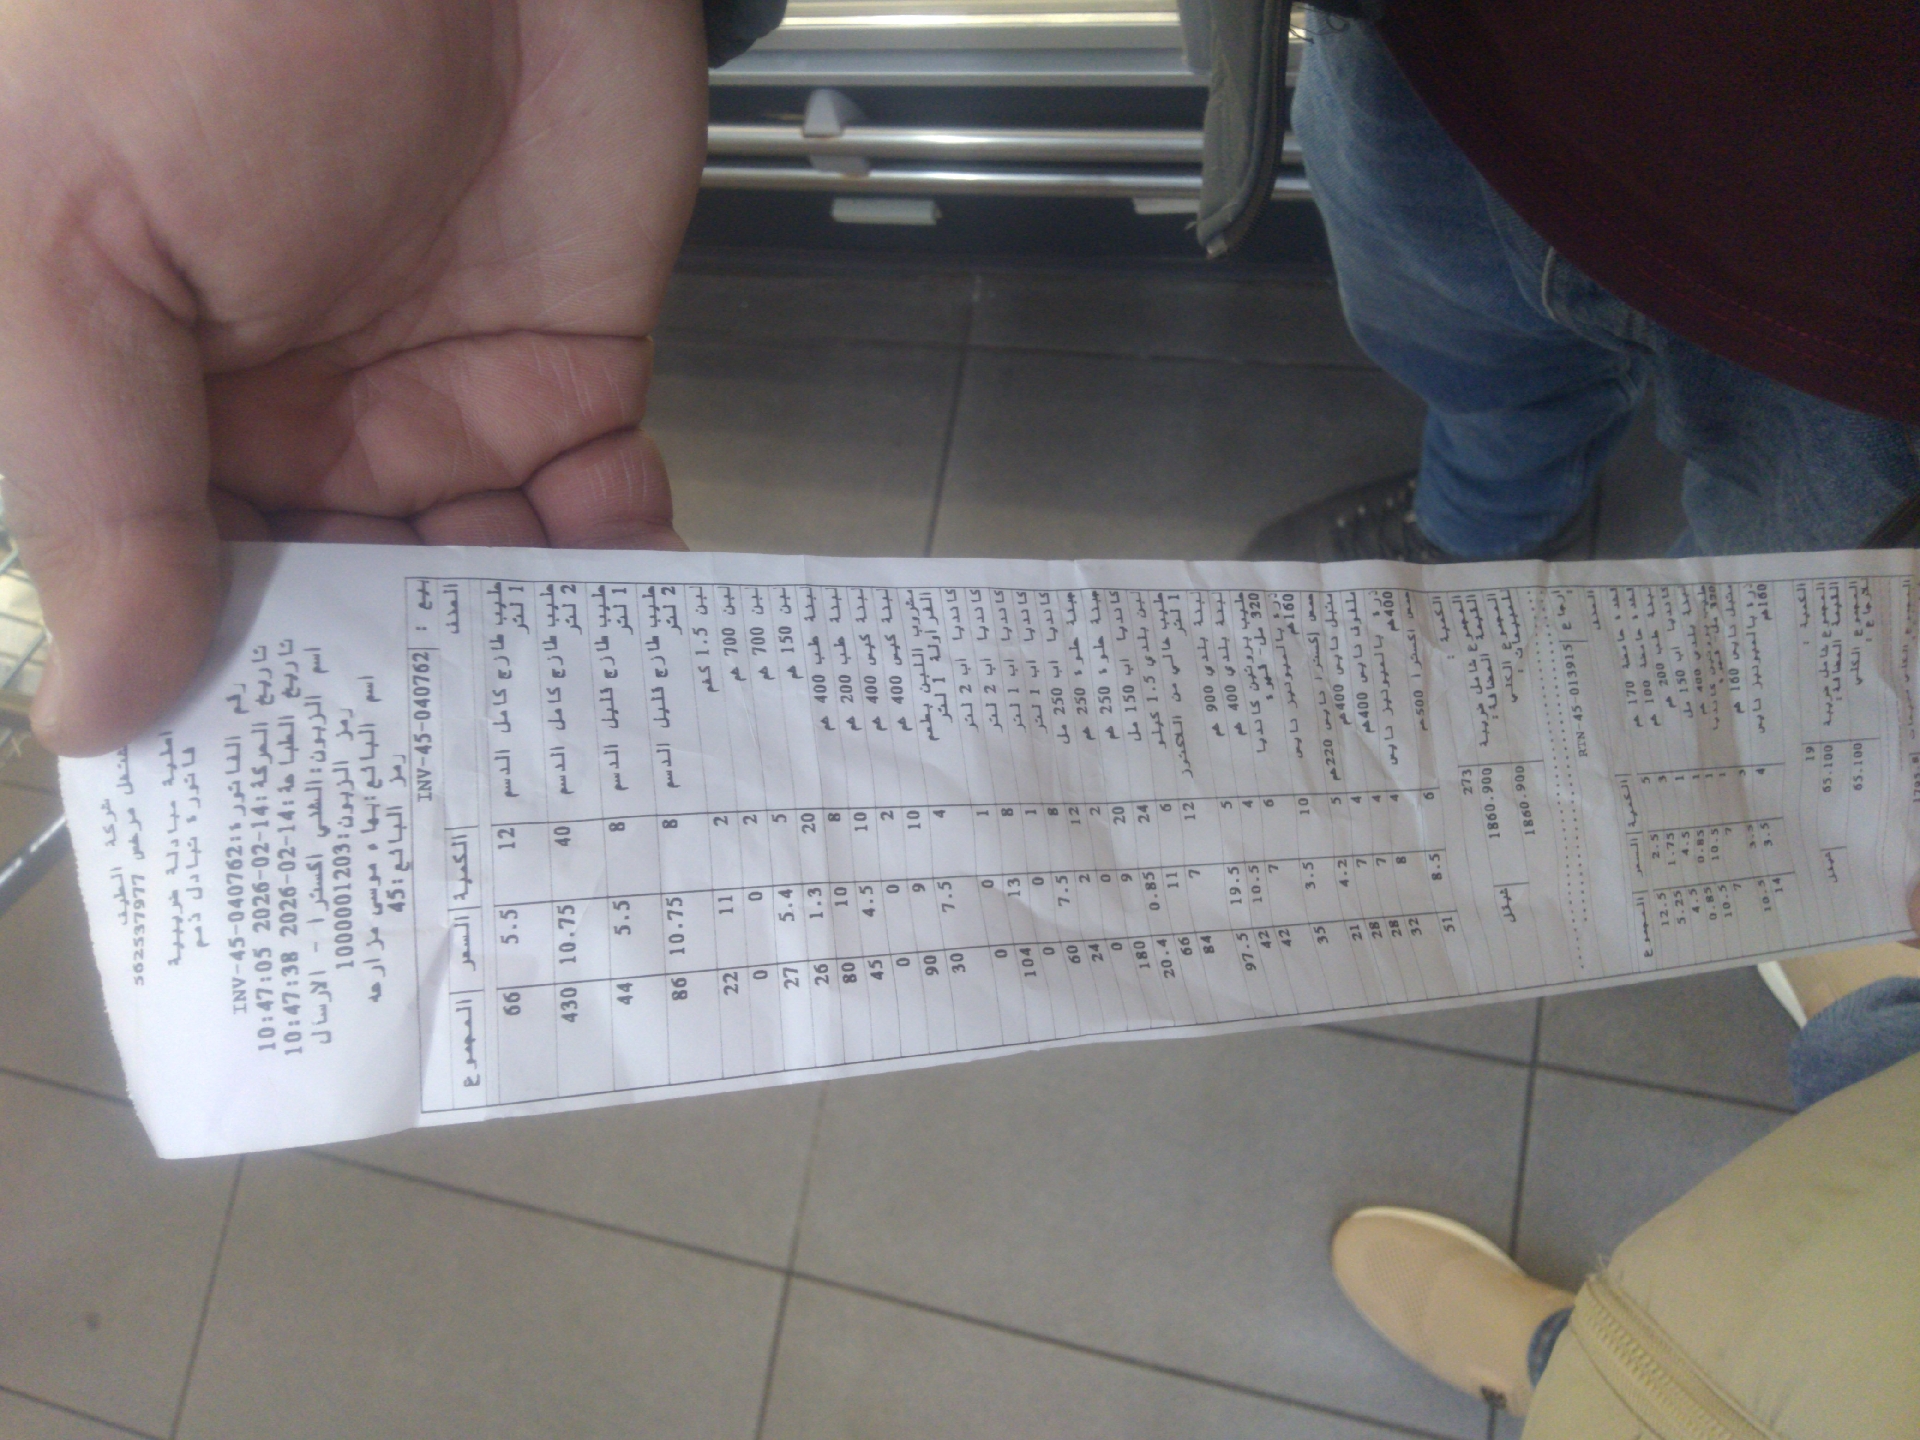 شركة الطيف
مشتغل مرخص 562537977
فاتورة تبادل ذمم
رقم الفاتورة:INV-45-040762
تاريخ الحركة:14-02-2026 10:47:05
تاريخ الطباعة:14-02-2026 10:47:38
اسم الزبون:الشني اكسترا - الارسال
رمز الزبون:1000001203
اسم البائع:بهاء موسى مزارعه
رمز البائع:45
بيع : INV-45-040762
الصنف الكمية السعر المجموع
حليب طازج كامل الدسم 1 لتر 12 5.5 66
حليب طازج كامل الدسم 2 لتر 40 10.75 430
حليب طازج قليل الدسم 1 لتر 8 5.5 44
حليب طازج قليل الدسم 2 لتر 8 10.75 86
لبن 1.5 كغم 2 11 22
لبن 700 غم 2 0 0
لبن 700 غم 5 5.4 27
لبن 150 غم 20 1.3 26
لبنة علب 400 غم 8 10 80
لبنة علب 200 غم 10 4.5 45
لبنة كيس 400 غم 2 0 0
لبنة كيس 400 غم 10 9 90
مشروب اللبن بطعم الفراولة 1 لتر 4 7.5 30
كانديا اب 2 لتر 1 0 0
كانديا اب 2 لتر 8 13 104
كانديا اب 1 لتر 1 0 0
كانديا اب 1 لتر 8 7.5 60
كانديا اب 250 مل 12 2 24
جبنة حلوة 250 غم 2 0 0
جبنة حلوة 250 غم 20 9 180
كانديا اب 150 مل 24 0.85 20.4
لبن بلدي 1.5 كيلو 6 11 66
حليب خالي من اللاكتوز 1 لتر 12 7 84
لبنة بلدي 900 غم 5 19.5 97.5
لبنة بلدي 400 غم 4 10.5 42
حليب بروتين كانديا 320 مل- قهوة 6 7 42
ذرة بالميونيز نايس 160غم 10 3.5 35
حمص إكسترا نايس 220غم 5 4.2 21
متبل نايس 400غم 4 7 28
ملفوف نايس 400غم 4 7 28
ذرة بالميونيز نايس 400غم 4 8 32
حمص اكسترا 500غم 6 8.5 51
الكمية : 273
المجموع شامل ضريبة القيمة المضافة: 1860.900 شيكل
المجموع الكلي للمبيعات: 1860.900
إرجاع RTN-45-013915
الصنف الكمية السعر المجموع
قشدة حامضة 170 غم 5 2.5 12.5
قشدة حامضة 100 غم 3 1.75 5.25
لبنة علب 200 غم 1 4.5 4.5
كانديا اب 150 مل 1 0.85 0.85
لبنة بلدي 400 غم 1 10.5 10.5
متبل نايس 160 غم 3 3.5 10.5
ذرة بالميونيز نايس 160غم 4 3.5 14
الكمية : 19
المجموع شامل ضريبة القيمة المضافة: 65.100 شيكل
المجموع الكلي للارجاع: 65.100